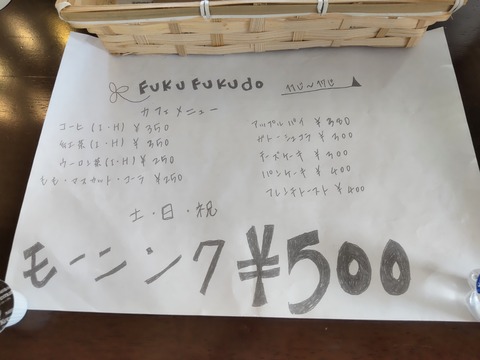 FUKU FUKUdo
11じ〜17じ
カフェメニュー
コーヒ (I・H) ¥350
紅茶 (I・H) ¥350
ウーロン茶(I・H) ¥250
もも・マスカット・コーラ ¥250
アップルパイ ¥380
ガトーショコラ ¥300
チーズケーキ ¥300
パンケーキ ¥400
フレンチトースト ¥400
土・日・祝
モーニング ¥500